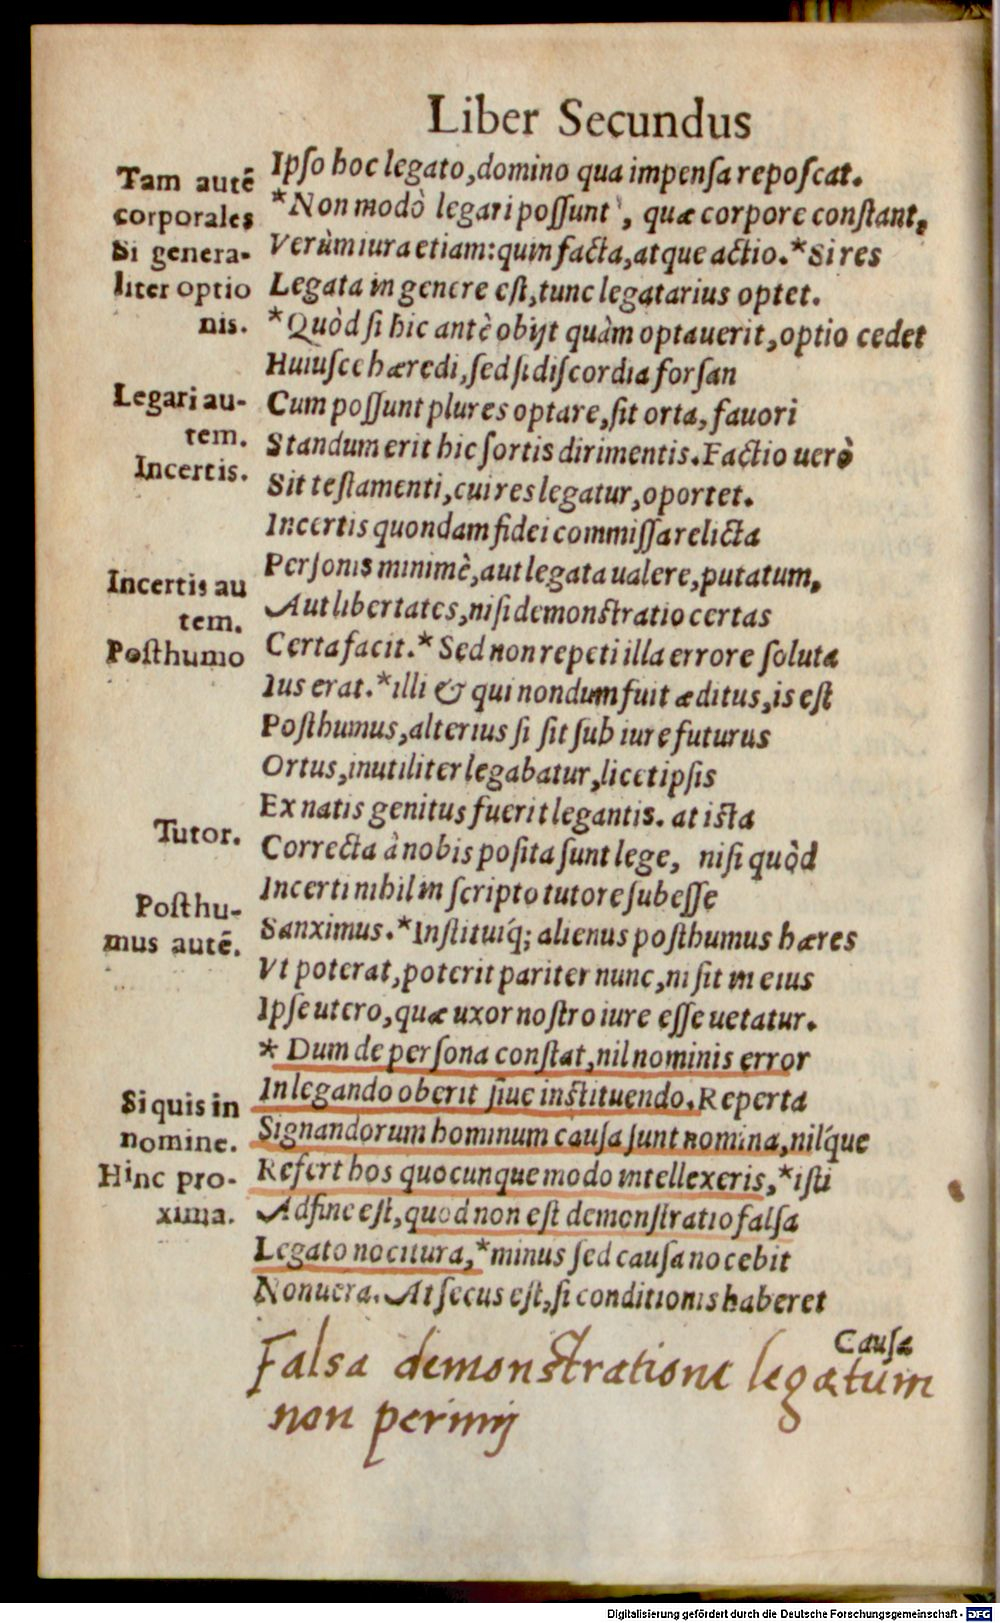 Liber Secundus
Tam autē
corporales
Si genera-
liter optio
nis.
Legari au-
tem.
Incertis.
Incertis au
tem.
Posthumo
Tutor.
Posthu-
mus autē.
Si quis in
nomine.
Hinc pro-
xima.
Ipso hoc legato, domino qua impensa reposcat.
*Non modò legari possunt, quæ corpore constant,
Verùm iura etiam: quin facta, atque actio.*Si res
Legata in genere est, tunc legatarius optet.
*Quòd si hic antè obijt quàm optauerit, optio cedet
Huiusce hæredi, sed si discordia forsan
Cum possunt plures optare, sit orta, fauori
Standum erit hic sortis dirimentis. Factio uerò
Sit testamenti, cui res legatur, oportet.
Incertis quondam fidei commissa relicta
Personis minimè, aut legata ualere, putatum,
Aut libertates, nisi demonstratio certas
Certa facit.* Sed non repeti illa errore soluta
Ius erat.*illi & qui nondum fuit æditus, is est
Posthumus, alterius si sit sub iure futurus
Ortus, inutiliter legabatur, licet ipsis
Ex natis genitus fuerit legantis. at ista
Correcta à nobis posita sunt lege, nisi quòd
Incerti nihil in scripto tutore subesse
Sanximus.*Instituiq́; alienus posthumus hæres
Vt poterat, poterit pariter nunc, ni sit in eius
Ipse utero, quæ uxor nostro iure esse uetatur.
* Dum de persona constat, nil nominis error
In legando oberit siue instituendo. Reperta
Signandorum hominum causa sunt nomina, nilq́ue
Refert hos quocunque modo intellexeris,*isti
Adfine est, quod non est demonstratio falsa
Legato nocitura,*minus sed causa nocebit
Non uera. At secus est, si conditionis haberet
Causa
Falsa demonstratione legatum
non perimij
Digitalisierung gefördert durch die Deutsche Forschungsgemeinschaft - DFG